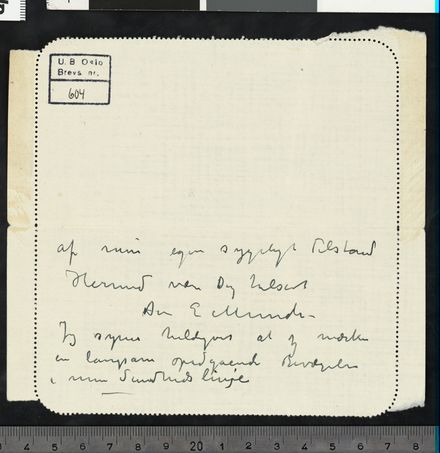 U.B. Oslo
Brevs. nr.
604
af min egen sygelige Tilstand
Hermed være Dig hilset
Din E Munch
Jeg synes heldigvis at jeg mærker
en langsom opadgaaende Bevægelse
i min Sundheds linje